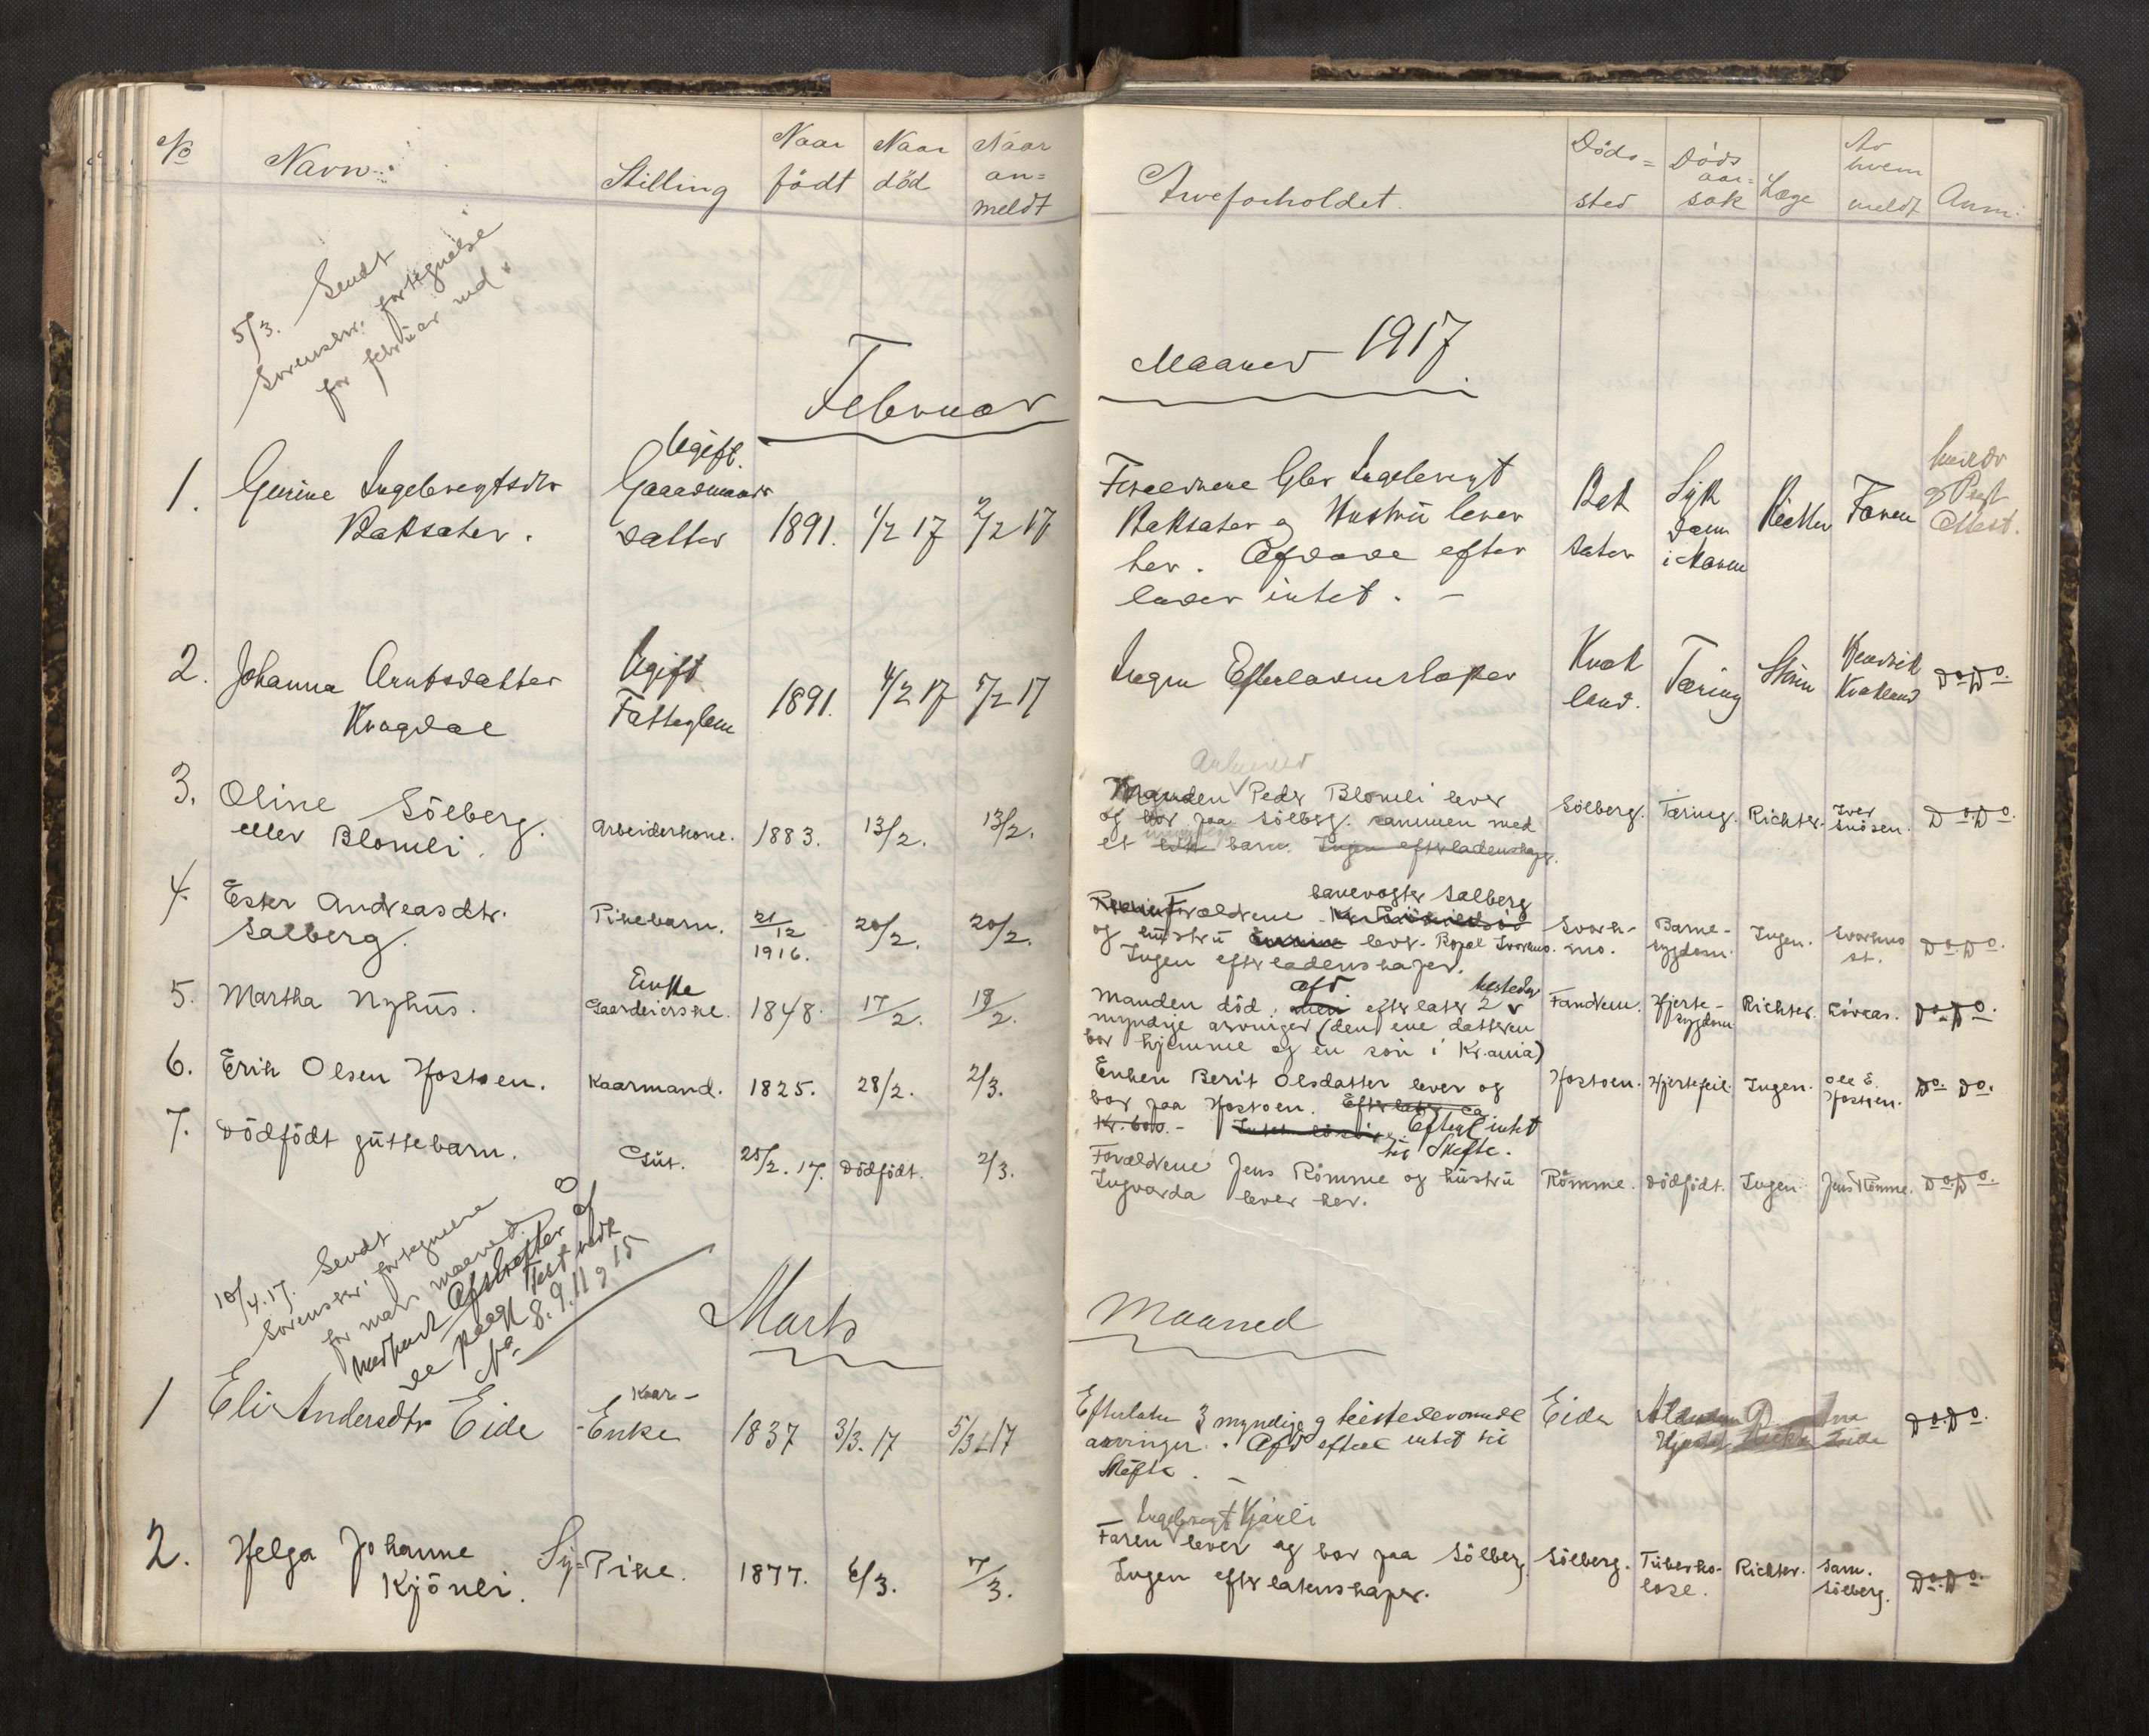 No Navn. Stilling Naar født Naar død Naar anmeldt
Arveforholdet. Dødssted Dødsaarsak Læge Av hvem meldt Anm.
5/3. Sendt
sorenskr. fortegnelse
for februar md.
Februar
Maaned 1917
1. Gurine Ingebregtsdtr Ugift. Gaardmands 
Baksater. datter 1891. 1/2 17 2/2 17
Forældrene Gbr Ingebrigt
Baksater og Hustru lever
her. Afdøde efter
lader intet. -
Bak
sater
Syk
dom
i Maven
Richter Faren
2. Johanna Arntsdatter Ugift
Kvagdal Fattiglem 1891. 4/2 17 5/2 17
Ingen Efterladenskaper
Kvak
land. Tæring Hendrik
Kvakland Do Do.
3. Oline Sölberg.
eller Blomli. Arbeiderkone. 1883. 13/2. 13/2.
Manden Peder Blomli lever
og bor paa Sölberg. sammen med
et barn. Ingen efterladenskaper.
Sölberg. Tæring. Richter. Iver
Snösen. Do Do.
4. Ester Andreasdtr.
Salberg. Pikebarn. 21/12
1916. 20/2. 20/2.
banevogter Salberg
Forældrene
og hustru lever. Bopæl Svorkmo.
Ingen efterladenskaper.
Svork-
mo. Barne-
sygdom. Ingen. Svorkmo
st. Do. Do.
5. Martha Nyhus. Enke
Gaardeierske. 1848. 17/2. 19/2.
Manden død. afd efterlater 2
myndige arvinger (den ene datteren
bor hjemme og en søn i Kr.ania)
Fandrem. Hjerte-
sygdom Richter. Do. Do.
6. Erik Olsen Hostoen. Kaarmand. 1825. 28/2. 2/3.
Enken Berit Olsdatter lever og
bor paa Hostoen. Efterlater ca
Kr. 600.- Efterl intet
til Skifte.
Hostoen. Hjertefeil. Ingen. Ole E.
Hostoen. Do. Do.
7. Dödfödt guttebarn. Gut. 25/2. 17. Dödfödt. 2/3.
Forældrene Jens Römme og hustru
Ingvarda lever her.
Römme. Dödfödt. Ingen. Jens Römme. Do. Do.
10/4.17. Sendt
sorenskr. fortegnelse
for mars maaned.
No 8. 9. 11 og 15
Marts
Maaned
1 Eli Andersdtr Eide Kaar-
Enke 1837 3/3. 17 5/3 17
Efterlater 3 myndige og tilstedeværende
arvinger. Afd efterl intet til
Skifte. -
Eide Do. Do.
2. Helga Johanne
Kjönli. Sy-Pike. 1877. 6/3. 7/3.
Ingebrigt Kjönli
Faren lever og bor paa Sölberg.
Ingen efterlatenskaper.
Sölberg. Tuberko-
lose. Richter. Sam.
Sölberg. Do. Do.